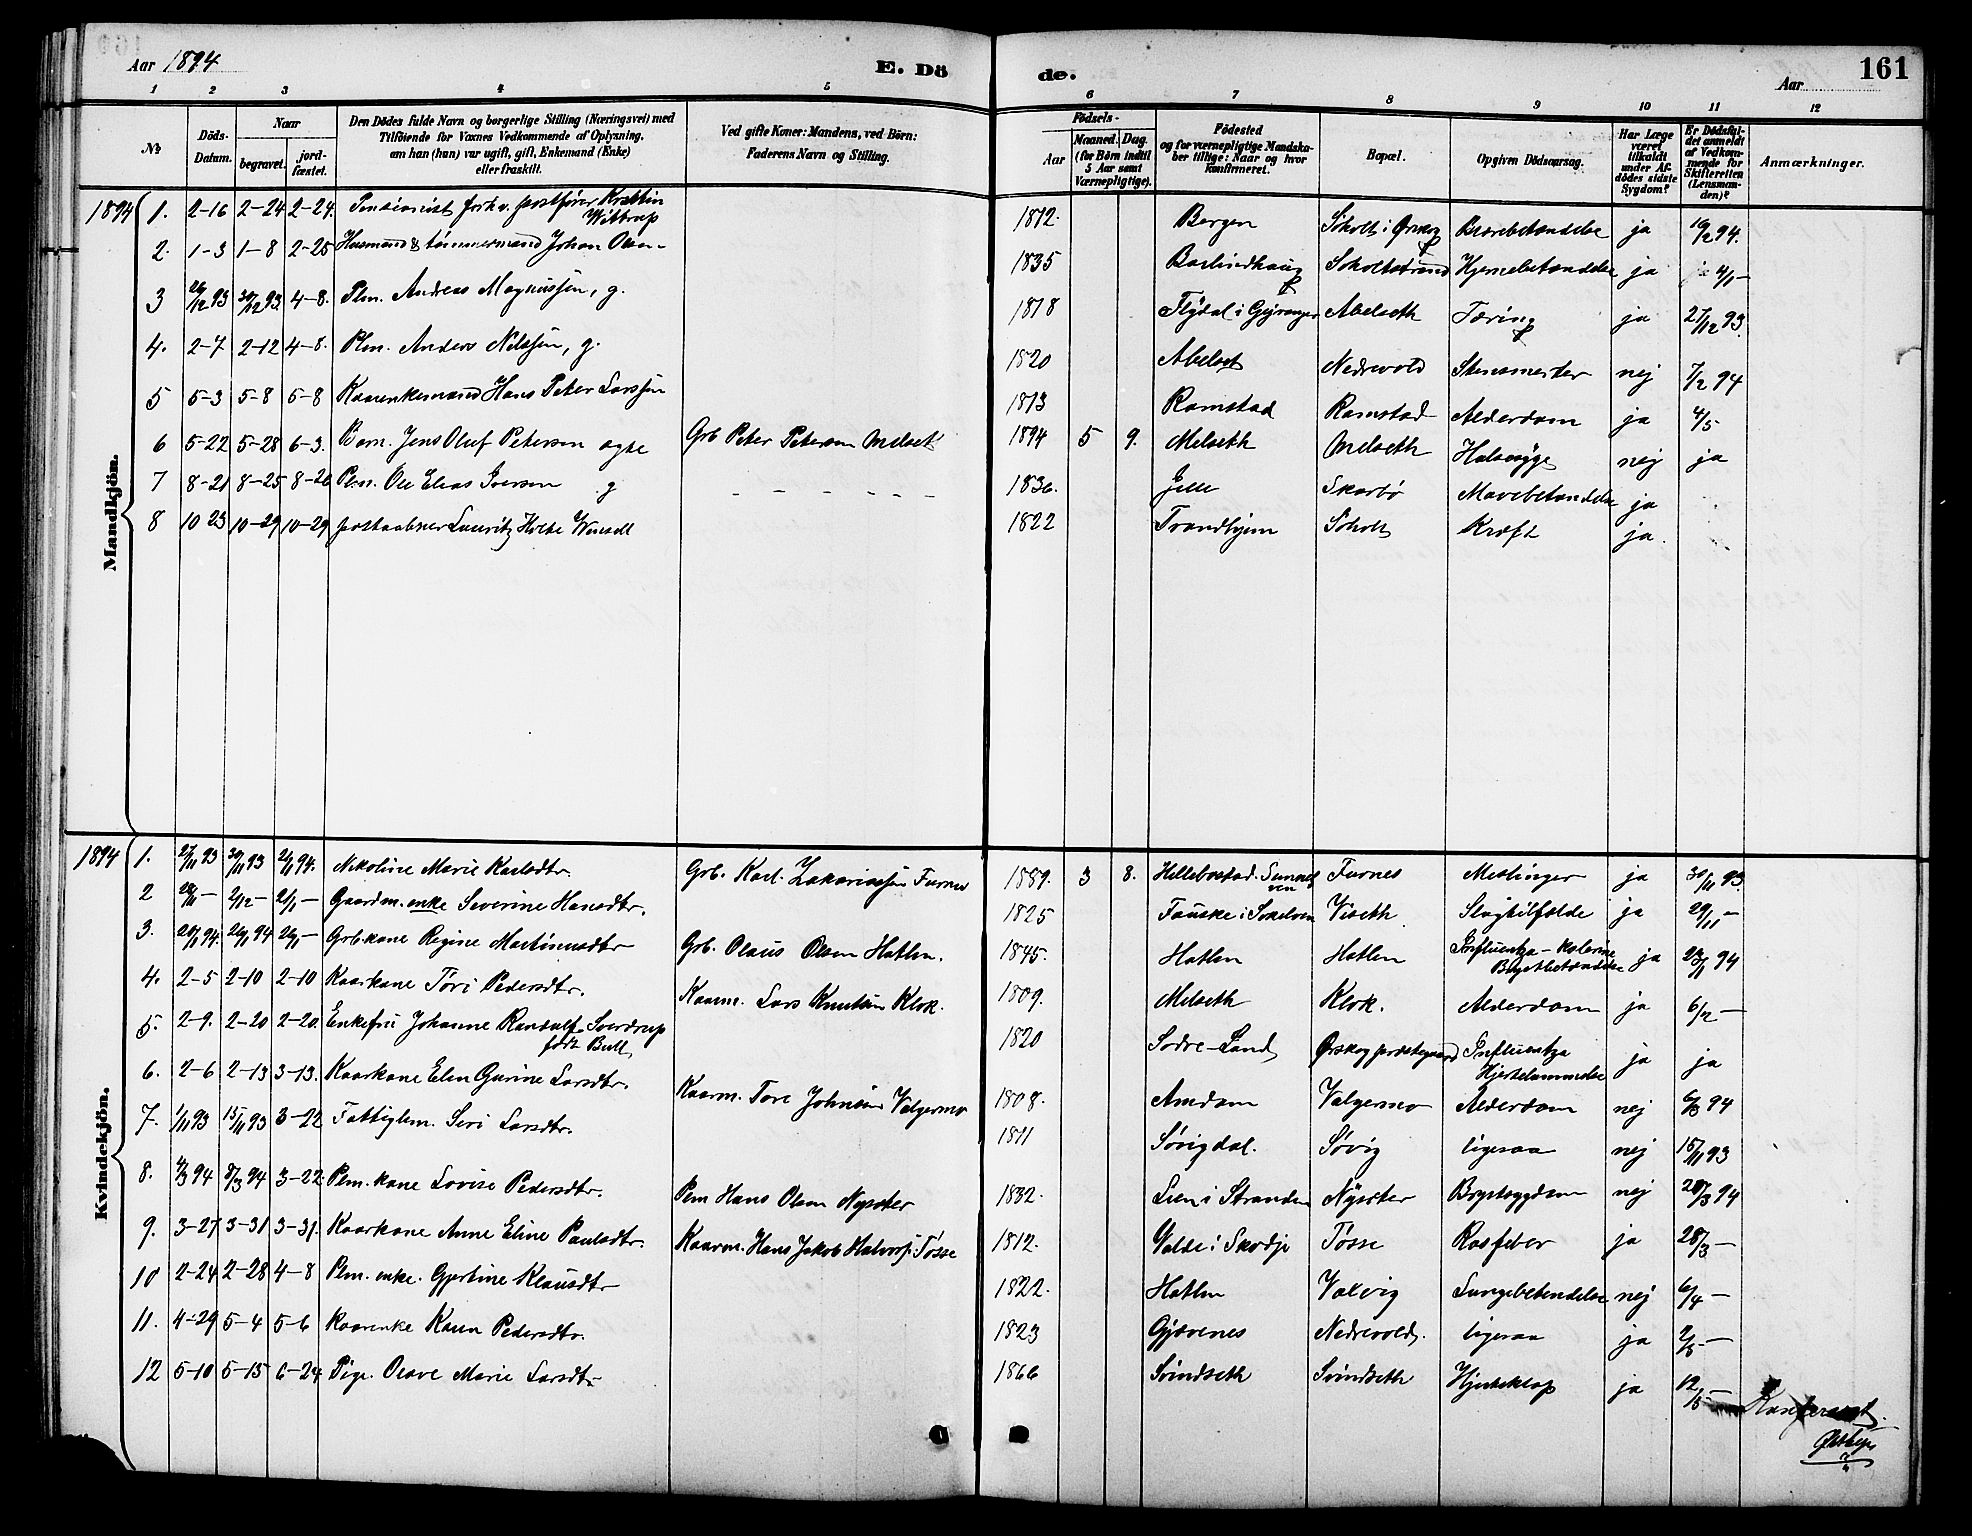 Aar 1894 E. Dö de. Aar 161
1 2 3 4 5 6 7 8 9 10 11 12
No Döds-Datum. Naar begravet. jordfæstet. Den Dödes fulde Navn og borgerlige Stilling (Næringsvei) med Tilföiende for Voxnes Vedkommende af Oplysning, om han (hun) var ugift, gift, Enkemand (Enke) eller fraskilt. Ved gifte Koner: Mandens, ved Börn: Faderens Navn og Stilling. Födsels- Aar Maaned. Dag. (for Börn indtil 5 Aar samt Værnepligtige). Födested og for værnepligtige Mandskaber tillige: Naar og hvor konfirmeret. Bopæl. Opgiven Dödsaarsag. Har Læge været tilkaldt under Afdödes sidste Sygdom? Er Dödsfaldet anmeldt af Vedkommende for Skifteretten (Lensmanden)? Anmærkninger.
Mandkjön.
1894 1. 2-16 2-24 2-24. Pensionist forhv. postfører Kristin Wittrup 1812. Bergen Søholt i Ørskog ja 16/2 94.
2. 1-3 1-8 2-25 Husmand & tømmermand Johan Olsen 1835 Søholtstrand Hjernebetændelse ja 4/1 -
3 26/12 93 30/12 93 4-8. Plm. Andreas Magnussen, g. 1818 Flydal i Gejranger Abelseth Tæring ja 27/12 93.
4. 2-7 2-12 4-8. Plm. Anders Nilssen, g. 1820 Abelset Nedrevold Stensmerter nej 7/2 94
5 5-3 5-8 5-8 Kaarenkemand Hans Peter Larssen 1813 Ramstad Ramstad Alderdom ja 4/5
6 5-22 5-28 6-3. Barn. Jens Oluf Petersen ægte Grb Peter Petersen Melset 1894 5 9. Melseth Melseth Halssyge nej ja
7 8-21 8-25 8-26 Plm. Ole Elias Iversen g - - - - - - 1836. Skarbø Mavebetændelse ja
8 10 23 10-29 10-29 postaabner Lauritz Holte 1822 Trondhjem Søholt Kræft ja.
Kvindekjön.
1894 1. 27/11 93 30/11 93 2/1 94. Nikoline Marie Karlsdtr. Grb. Karl Zakariassen Furnes 1889. 3 8. Hellebostad. Sunnelven Furnes ja 30/11 93.
2 28/11 - 2/12 - 2/1 - Gaardm. enke Severine Hansdtr. 1825 Fauske i Søkelven Viseth Slagtilfælde ja 29/11 -
3. 20/1 94. 26/1 94 26/1 - Grb. kone Regine Martinusdtr Grb. Olaus Olsen Hatlen. 1845. Hatlen Hatlen Influentza - Brystbetændelse ja 23/1 94
4. 2-5 2-10 2-10 Kaarkone Tøri Pedersdtr. Kaarm. Lars Knutsen Klok. 1809. Melseth Klok. Alderdom ja 6/2 -
5. 2-9. 2-20 2-20. Enkefru Johanne Randulf Sverdrup født Bull 1820 Søndre-Land Ørskog prestegaard Influentza Hjertelammelse ja ja
6. 2-6 2-13 3-13. Kaarkone Elen Gurine Larsdtr. Kaarm. Tore Johnsen Valgermo 1808. Amdam Valgermo Alderdom nej 6/3 94
7. 1/11 93 15/11 93 3-22 Fattiglem. Siri Larsdtr. 1811 Søvigdal. Søvig ligesaa nej 15/11 93
8. 4/3 94 8/3 94 3-22 Plm. kone Lovise Pedersdtr. Plm Hans Olsen Nysæter 1832. Lien i Stranden Nysæter nej 20/3 94
9. 3-27 3-31 3-31. Kaarkone Anne Eline Paulsdtr. Kaarm. Hans Jakob Halvors. Tøsse 1812. Valde i Skodje Tøsse Rosfeber ja 28/3 -
10 2-24 2-28 4-8 Plm. enke. Gjertine Klausdtr 1822. Hatlen Valvig Lungebetendelse nej 6/4 -
11. 4-29 5-4 5-6 Kaarenke Karen Pedersdtr. 1823 Gjævenes Nedrevold. ligesaa ja 2/5 -
12 5-10 5-15 6-24 Pige. Olave Marie Larsdtr 1866 Svindseth Svindseth Hjerteklap ja 12/5 -
Konfereret.